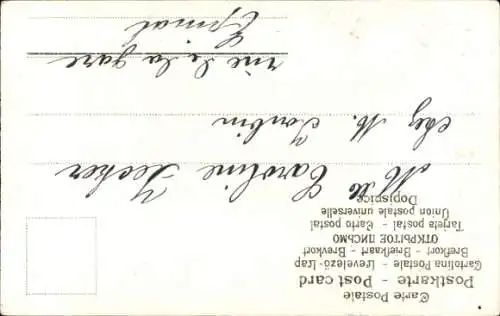 Carte Postale
Postkarte - Post card
Cartolina Postale - Levelező-Lap
Brefkort - Briefkaart - Brevkort
ОТКРЫТОЕ ПИСЬМО
Tarjeta postal - Carto postal
Union postale universelle
Dopisnice
Mlle Caroline
chez M.
rue de la gare
Epinal